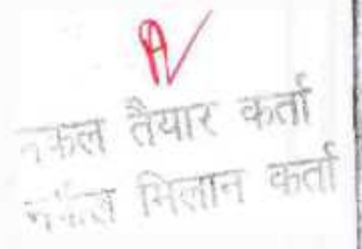 नकल तैयार कर्ता
नकल मिलान कर्ता